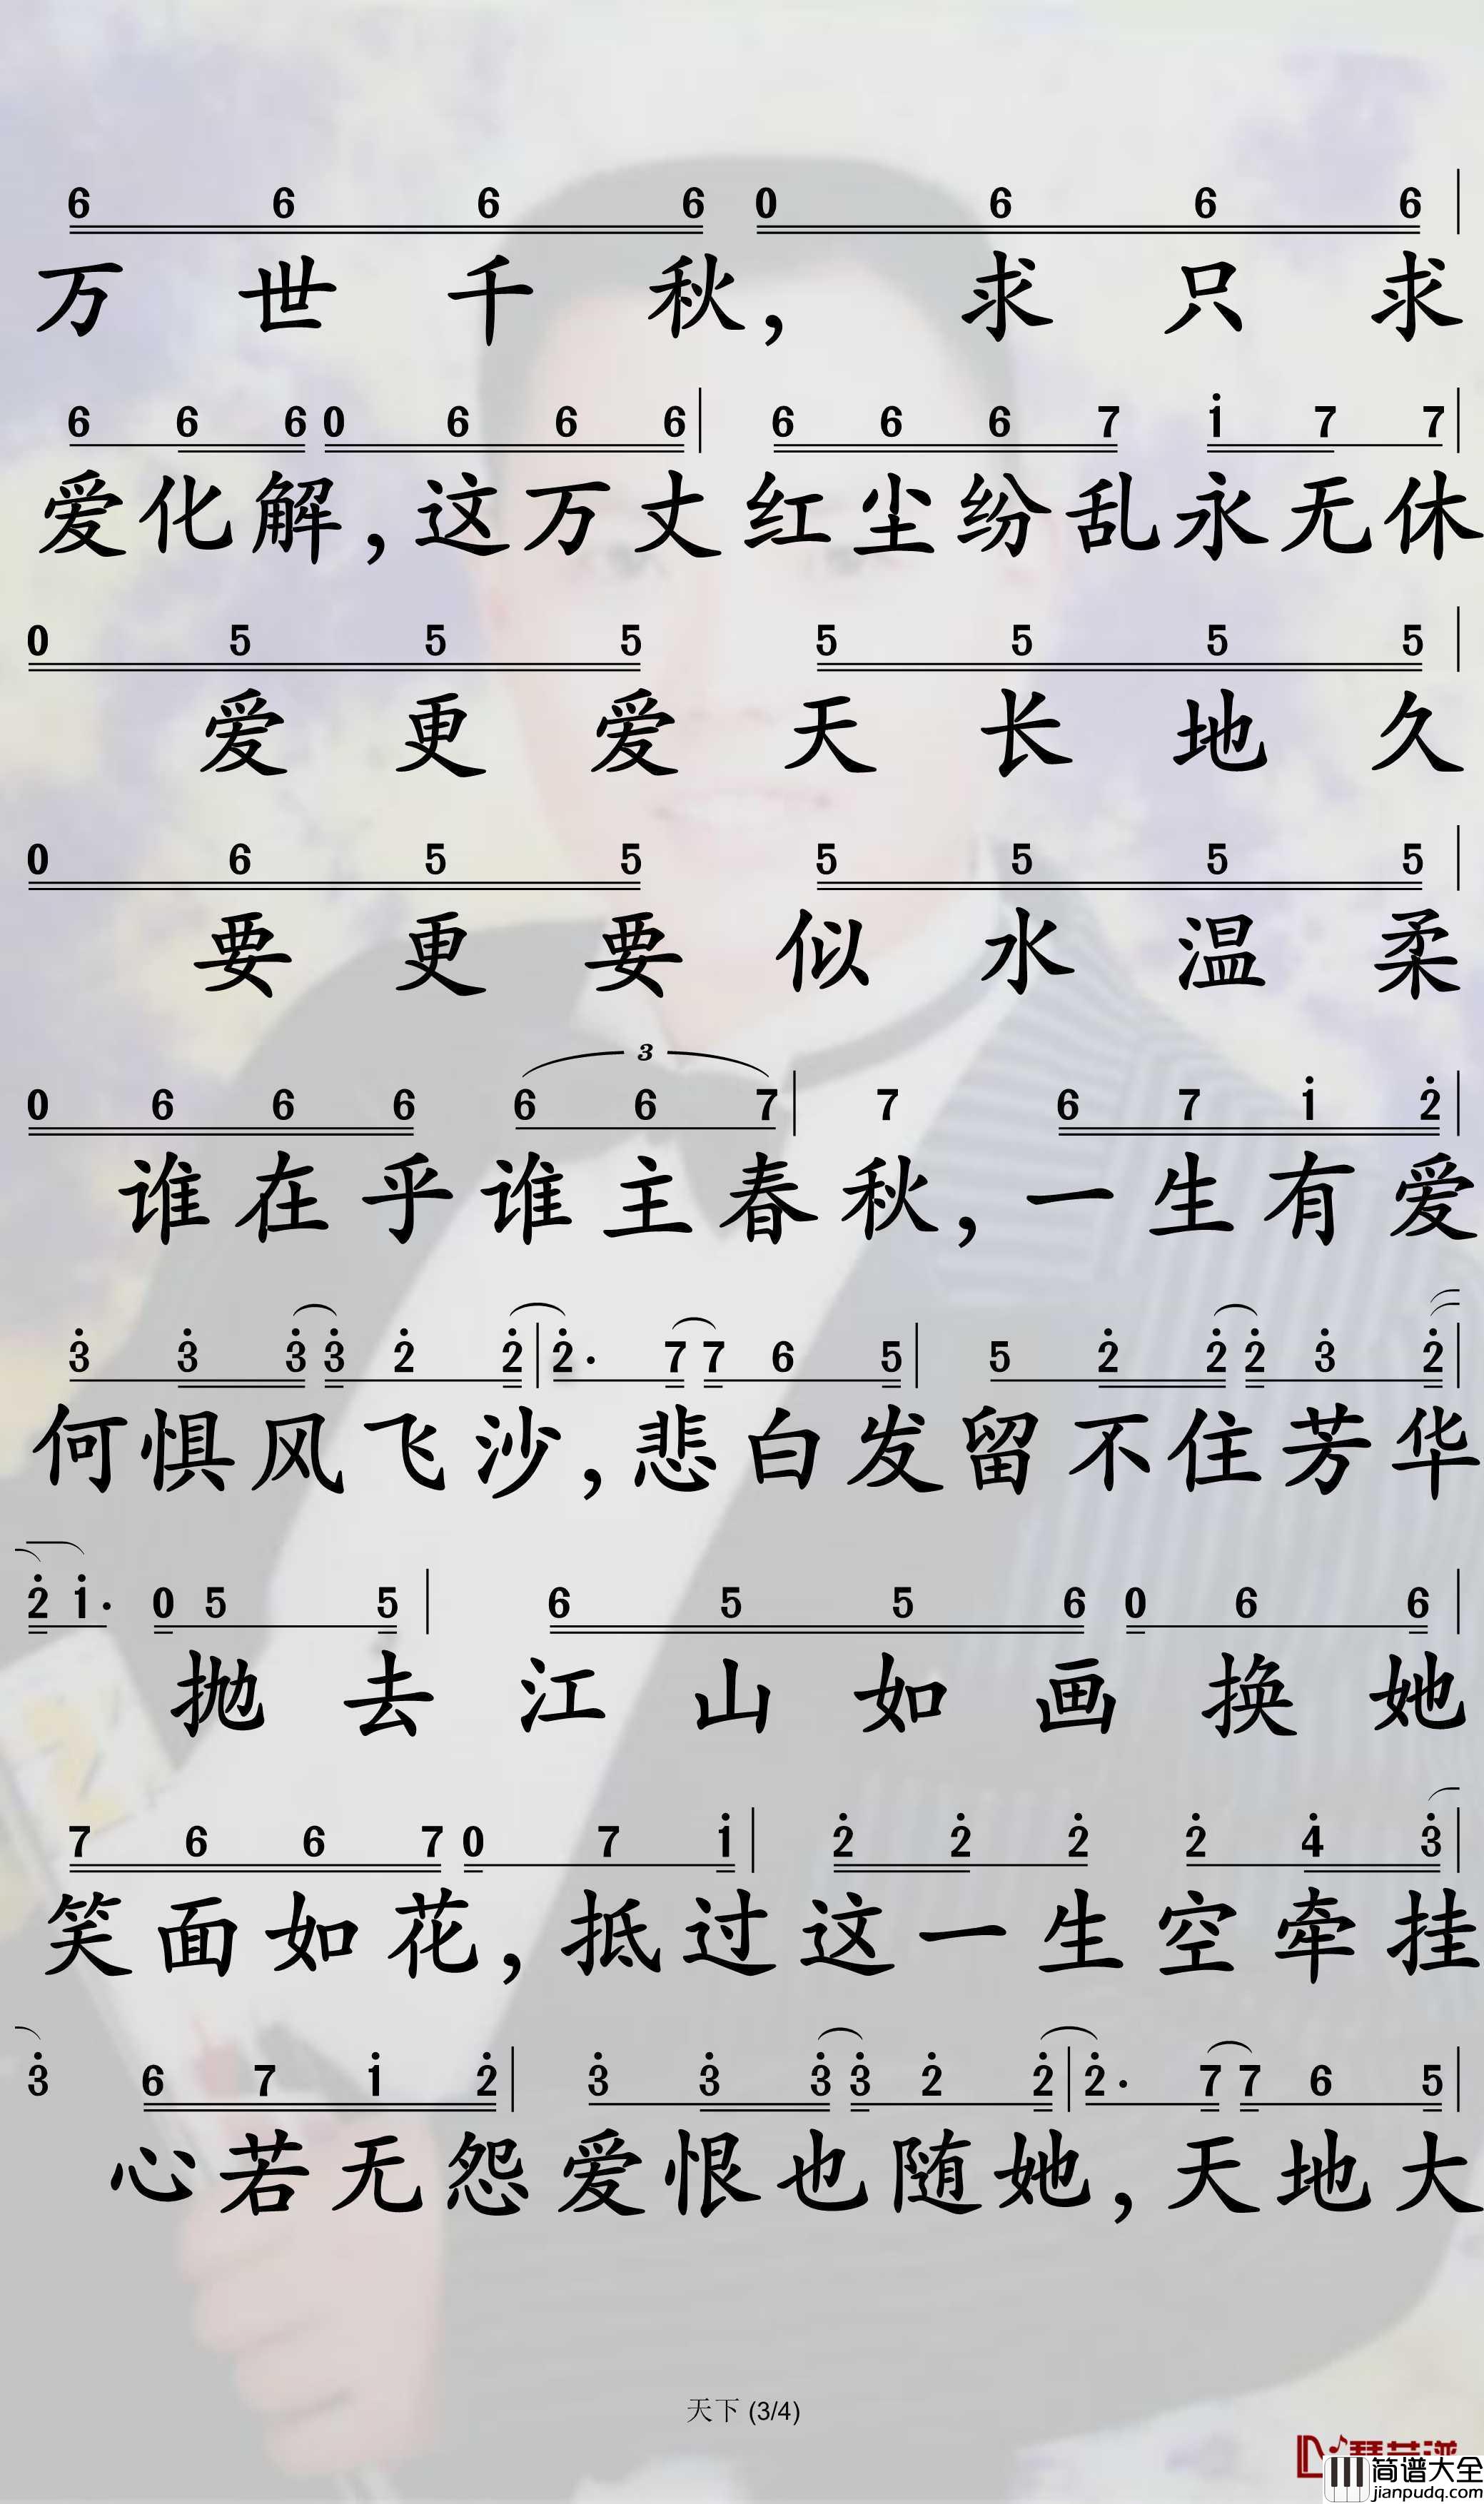 6 6 6 6 0 6 6 6
万 世 千 秋， 求 只 求
6 6 6 0 6 6 6 6 6 6 7 i 7 7
爱 化 解， 这 万 丈 红 尘 纷 乱 永 无 休
0 5 5 5 5 5 5 5
爱 更 爱 天 长 地 久
0 6 5 5 5 5 5 5
要 更 要 似 水 温 柔
3
0 6 6 6 6 6 7 7 6 7 i 2̇
谁 在 乎 谁 主 春 秋， 一 生 有 爱
3̇ 3̇ 3̇ 3̇ 2̇ 2̇ 2̇· 7 7 6 5 5 2̇ 2̇ 2̇ 3̇ 2̇
何 惧 风 飞 沙， 悲 白 发 留 不 住 芳 华
2̇ i· 0 5 5 6 5 5 6 0 6 6
抛 去 江 山 如 画 换 她
7 6 6 7 0 7 i 2̇ 2̇ 2̇ 2̇ 4̇ 3̇
笑 面 如 花， 抵 过 这 一 生 空 牵 挂
3̇ 6 7 i 2̇ 3̇ 3̇ 3̇ 3̇ 2̇ 2̇ 2̇· 7 7 6 5
心 若 无 怨 爱 恨 也 随 她， 天 地 大
天下 (3/4)
简谱大全
jianpudq.com